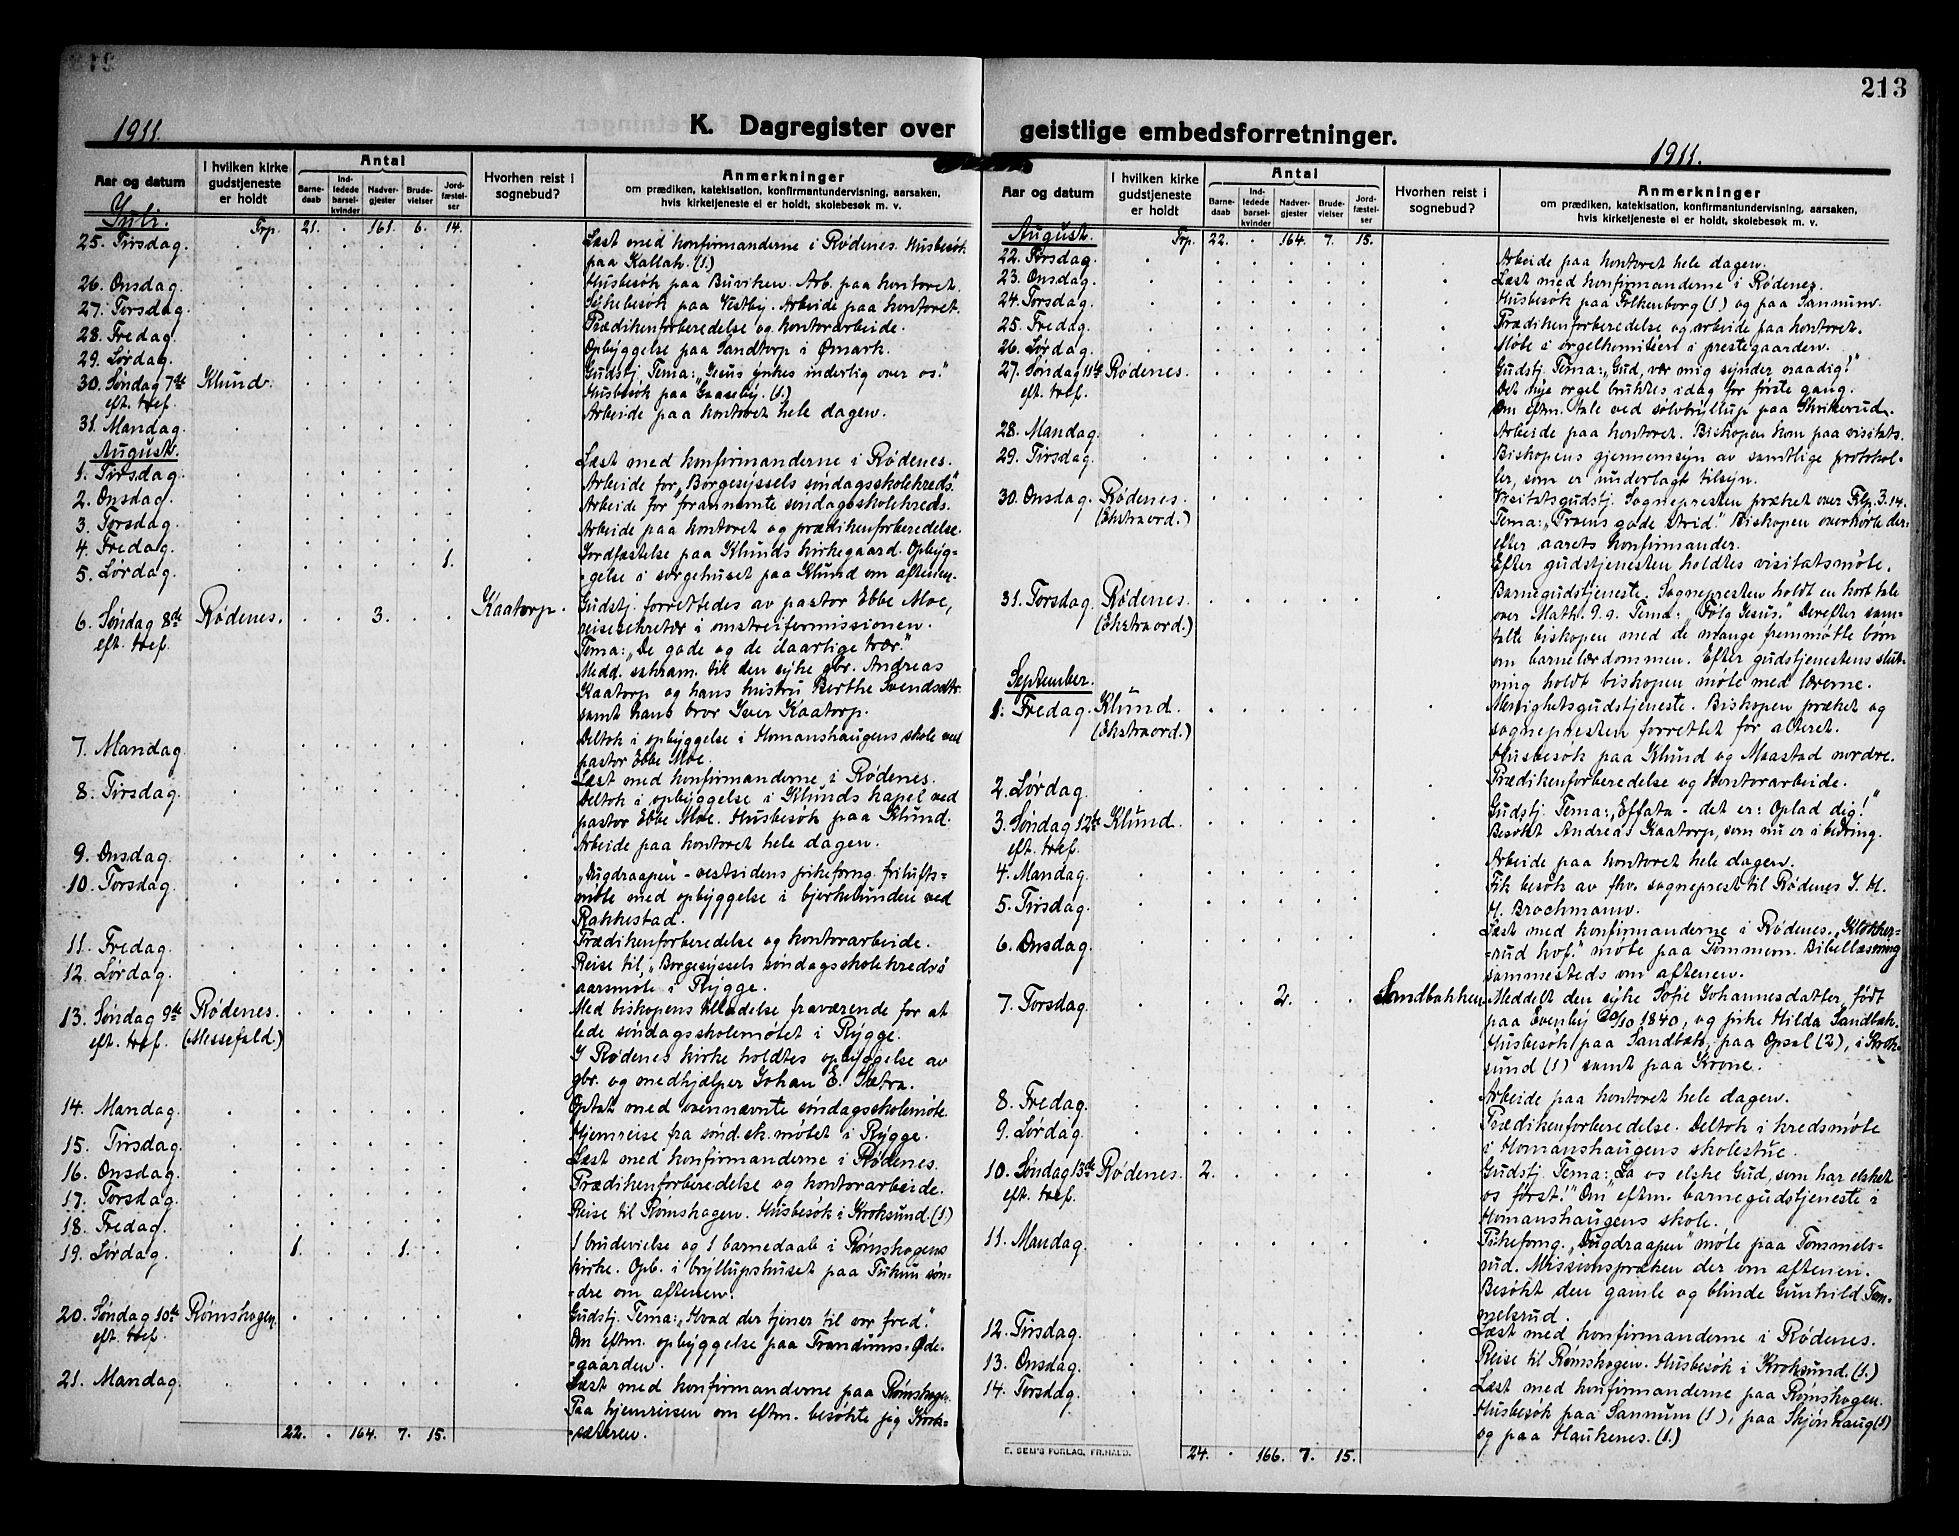 213
1911.
K. Dagregister over
Aar og datum
I hvilken kirke gudstjeneste er holdt
Antal
Barne-daab
Ind-ledede barsel-kvinder
Nadver-gjester
Brude-vielser
Jord-fæstel-ser
Hvorhen reist i sognebud?
Anmerkninger
om prædiken, katekisation, konfirmantundervisning, aarsaken,
hvis kirketjeneste ei er holdt, skolebesøk m. v.
Juli. Frp. 21. . 161. 6. 14.
25. Tirsdag. Læst med konfirmanderne i Rødenes. Husbesøk
paa Kallak. (1.)
26. Onsdag. Husbesøk paa Buviken. Arb. paa kontoret.
27. Torsdag. Sykebesøk paa Vestby. Arbeide paa kontoret.
28. Fredag. Prædikenforberedelse og kontorarbeide.
29. Lørdag. Opbyggelse paa Sandtorp i Ømark.
30. Søndag 7de Klund. Gudstj. Tema: „Jesus ynkes inderlig over os."
eft. tref. Husbesøk paa Gaaseby. (1.)
31. Mandag. Arbeide paa kontoret hele dagen.
August.
1. Tirsdag. Læst med konfirmanderne i Rødenes.
2. Onsdag. Arbeide for „Borgesyssels søndagsskolekreds."
3. Torsdag. Arbeide for forannævnte søndagsskolekreds.
4. Fredag. Arbeide paa kontoret og prædikenforberedelse.
5. Lørdag. 1. Jordfæstelse paa Klunds kirkegaard. Opbyg-
gelse i sørgehuset paa Klund om aftenen.
6. Søndag 8de Rødenes. 3. Kaatorp. Gudstj. forrettedes av pastor Ebbe Moe,
eft. tref. reisesekretær i omstreifermissionen.
Tema: „De gode og de daarlige trær."
Medd. sakram. til den syke gbr. Andreas
Kaatorp og hans hustru Berthe Svendsdtr.
samt hans bror Iver Kaatorp.
7. Mandag. Deltok i opbyggelse i Homanshaugens skole ved
pastor Ebbe Moe.
8. Tirsdag. Læst med konfirmanderne i Rødenes.
Deltok i opbyggelse i Klunds kapel ved
pastor Ebbe Moe. Husbesøk paa Klund.
9. Onsdag. Arbeide paa kontoret hele dagen.
10. Torsdag. „Dugdraapen" - vestsidens pikeforng. frilufts-
møte med opbyggelse i bjerkelunden ved
Rakkestad.
11. Fredag. Prædikenforberedelse og kontorarbeide.
12. Lørdag. Reise til „Borgesyssels søndagsskolekreds's
aarsmøte i Rygge.
13. Søndag 9de Rødenes. Med biskopens tilladelse fraværende for at
eft. tref. (Messefald.) lede søndagsskolemøtet i Rygge.
I Rødenes kirke holdtes opbyggelse av
gbr. og medhjælper Johan E. Sætra.
14. Mandag. Optat med ovennævnte søndagsskolemøte.
15. Tirsdag. Hjemreise fra sønd.sk. møtet i Rygge.
16. Onsdag. Læst med konfirmanderne i Rødenes.
17. Torsdag. Prædikenforberedelse og kontorarbeide.
18. Fredag. Reise til Rømskogen. Husbesøk i Kroksund. (1)
19. Lørdag. 1. 1. 1 brudevielse og 1 barnedaab i Rømskogens
kirke. Opb. i bryllupshuset paa Tukun søn-
dre om aftenen.
20. Søndag 10de Rømskogen. Gudstj. Tema: „Hvad der tjener til vor fred."
eft. tref. Om eftm. opbyggelse paa Trandums-Øde-
gaarden.
21. Mandag. Læst med konfirmanderne paa Rømskogen.
Paa hjemreisen om eftm. besøkte jeg Krok-
sæteren.
22. . 164. 7. 15.
geistlige embedsforretninger.
1911.
Aar og datum
I hvilken kirke gudstjeneste er holdt
Antal
Barne-daab
Ind-ledede barsel-kvinder
Nadver-gjester
Brude-vielser
Jord-fæstel-ser
Hvorhen reist i sognebud?
Anmerkninger
om prædiken, katekisation, konfirmantundervisning, aarsaken,
hvis kirketjeneste ei er holdt, skolebesøk m. v.
August. Frp. 22. . 164. 7. 15.
22. Tirsdag. Arbeide paa kontoret hele dagen.
23. Onsdag. Læst med konfirmanderne i Rødenes.
24. Torsdag. Husbesøk paa Folkenborg (1) og paa Sannum.
25. Fredag. Prædikenforberedelse og arbeide paa kontoret.
26. Lørdag. Møte i orgelkomiteen i prestegaarden.
27. Søndag 11te Rødenes. Gudstj. Tema: „Gud, vær mig synder naadig!"
eft. tref. Det nye orgel bruktes idag for første gang.
Om eftm. tale ved sølvbryllup paa Skrikerud.
28. Mandag. Arbeide paa kontoret. Biskopen kom paa visitats.
29. Tirsdag. Biskopens gjennemsyn av samtlige protokol-
ler, som er underlagt tilsyn.
30. Onsdag. Rødenes. Visitatsgudstj. Sognepresten præket over Flp. 3.14.
(Ekstraord.) Tema: „Troens gode strid." Biskopen overhørte der-
efter aarets konfirmander.
Efter gudstjenesten holdtes visitatsmøte.
31. Torsdag. Rødenes. Barnegudstjeneste. Sognepresten holdt en kort tale
(Ekstraord.) over Math. 9.9. Tema: „Følg Jesus." Derefter sam-
talte biskopen med de mange fremmøtte børn
om barnelærdommen. Efter gudstjenestens slut-
ning holdt biskopen møte med lærerne.
September.
1. Fredag. Klund. Menighetsgudstjeneste. Biskopen præket og
(Ekstraord.) sognepresten forrettet for alteret.
Husbesøk paa Klund og Maastad nordre.
2. Lørdag. Prædikenforberedelse og kontorarbeide.
3. Søndag 12te Klund. Gudstj. Tema: „Effata - det er: Oplad dig!"
eft. tref. Besøkt Andreas Kaatorp, som nu er i bedring.
4. Mandag. Arbeide paa kontoret hele dagen.
5. Tirsdag. Fik besøk av fhv. sogneprest til Rødenes J. H.
H. Brochmann.
6. Onsdag. Læst med konfirmanderne i Rødenes. „Klokker-
rud kvf." møte paa Tommern. Bibellæsning
sammesteds om aftenen.
7. Torsdag. 2. Sandbakken. Meddelt den syke Sofie Johannesdatter, født
paa Evenby 20/10 1840, og pike Hilda Sandbæk.
Husbesøk paa Sandbæk, paa Opsal (2), i Krok-
sund (1) samt paa Krone.
8. Fredag. Arbeide paa kontoret hele dagen.
9. Lørdag. Prædikenforberedelse. Deltok i kredsmøte
i Homanshaugens skolestue.
10. Søndag 13de Rødenes. 2. Gudstj. Tema: „La os elske Gud, som har elsket
eft. tref. os først!" Om eftm. barnegudstjeneste i
Homanshaugens skole.
11. Mandag. Pikeforng. „Dugdraapen" møte paa Tommels-
rud. Missionspræken der om aftenen.
Besøkt den gamle og blinde Gunhild Tom-
melsrud.
12. Tirsdag. Læst med konfirmanderne i Rødenes.
13. Onsdag. Reise til Rømskogen. Husbesøk i Kroksund. (1.)
14. Torsdag. Læst med konfirmanderne paa Rømskogen.
Husbesøk paa Sannum (1), paa Skjønhaug (1)
og paa Haukenes. (1.)
E. SEM'S FORLAG, FR.HALD.
24. . 166. 7. 15.